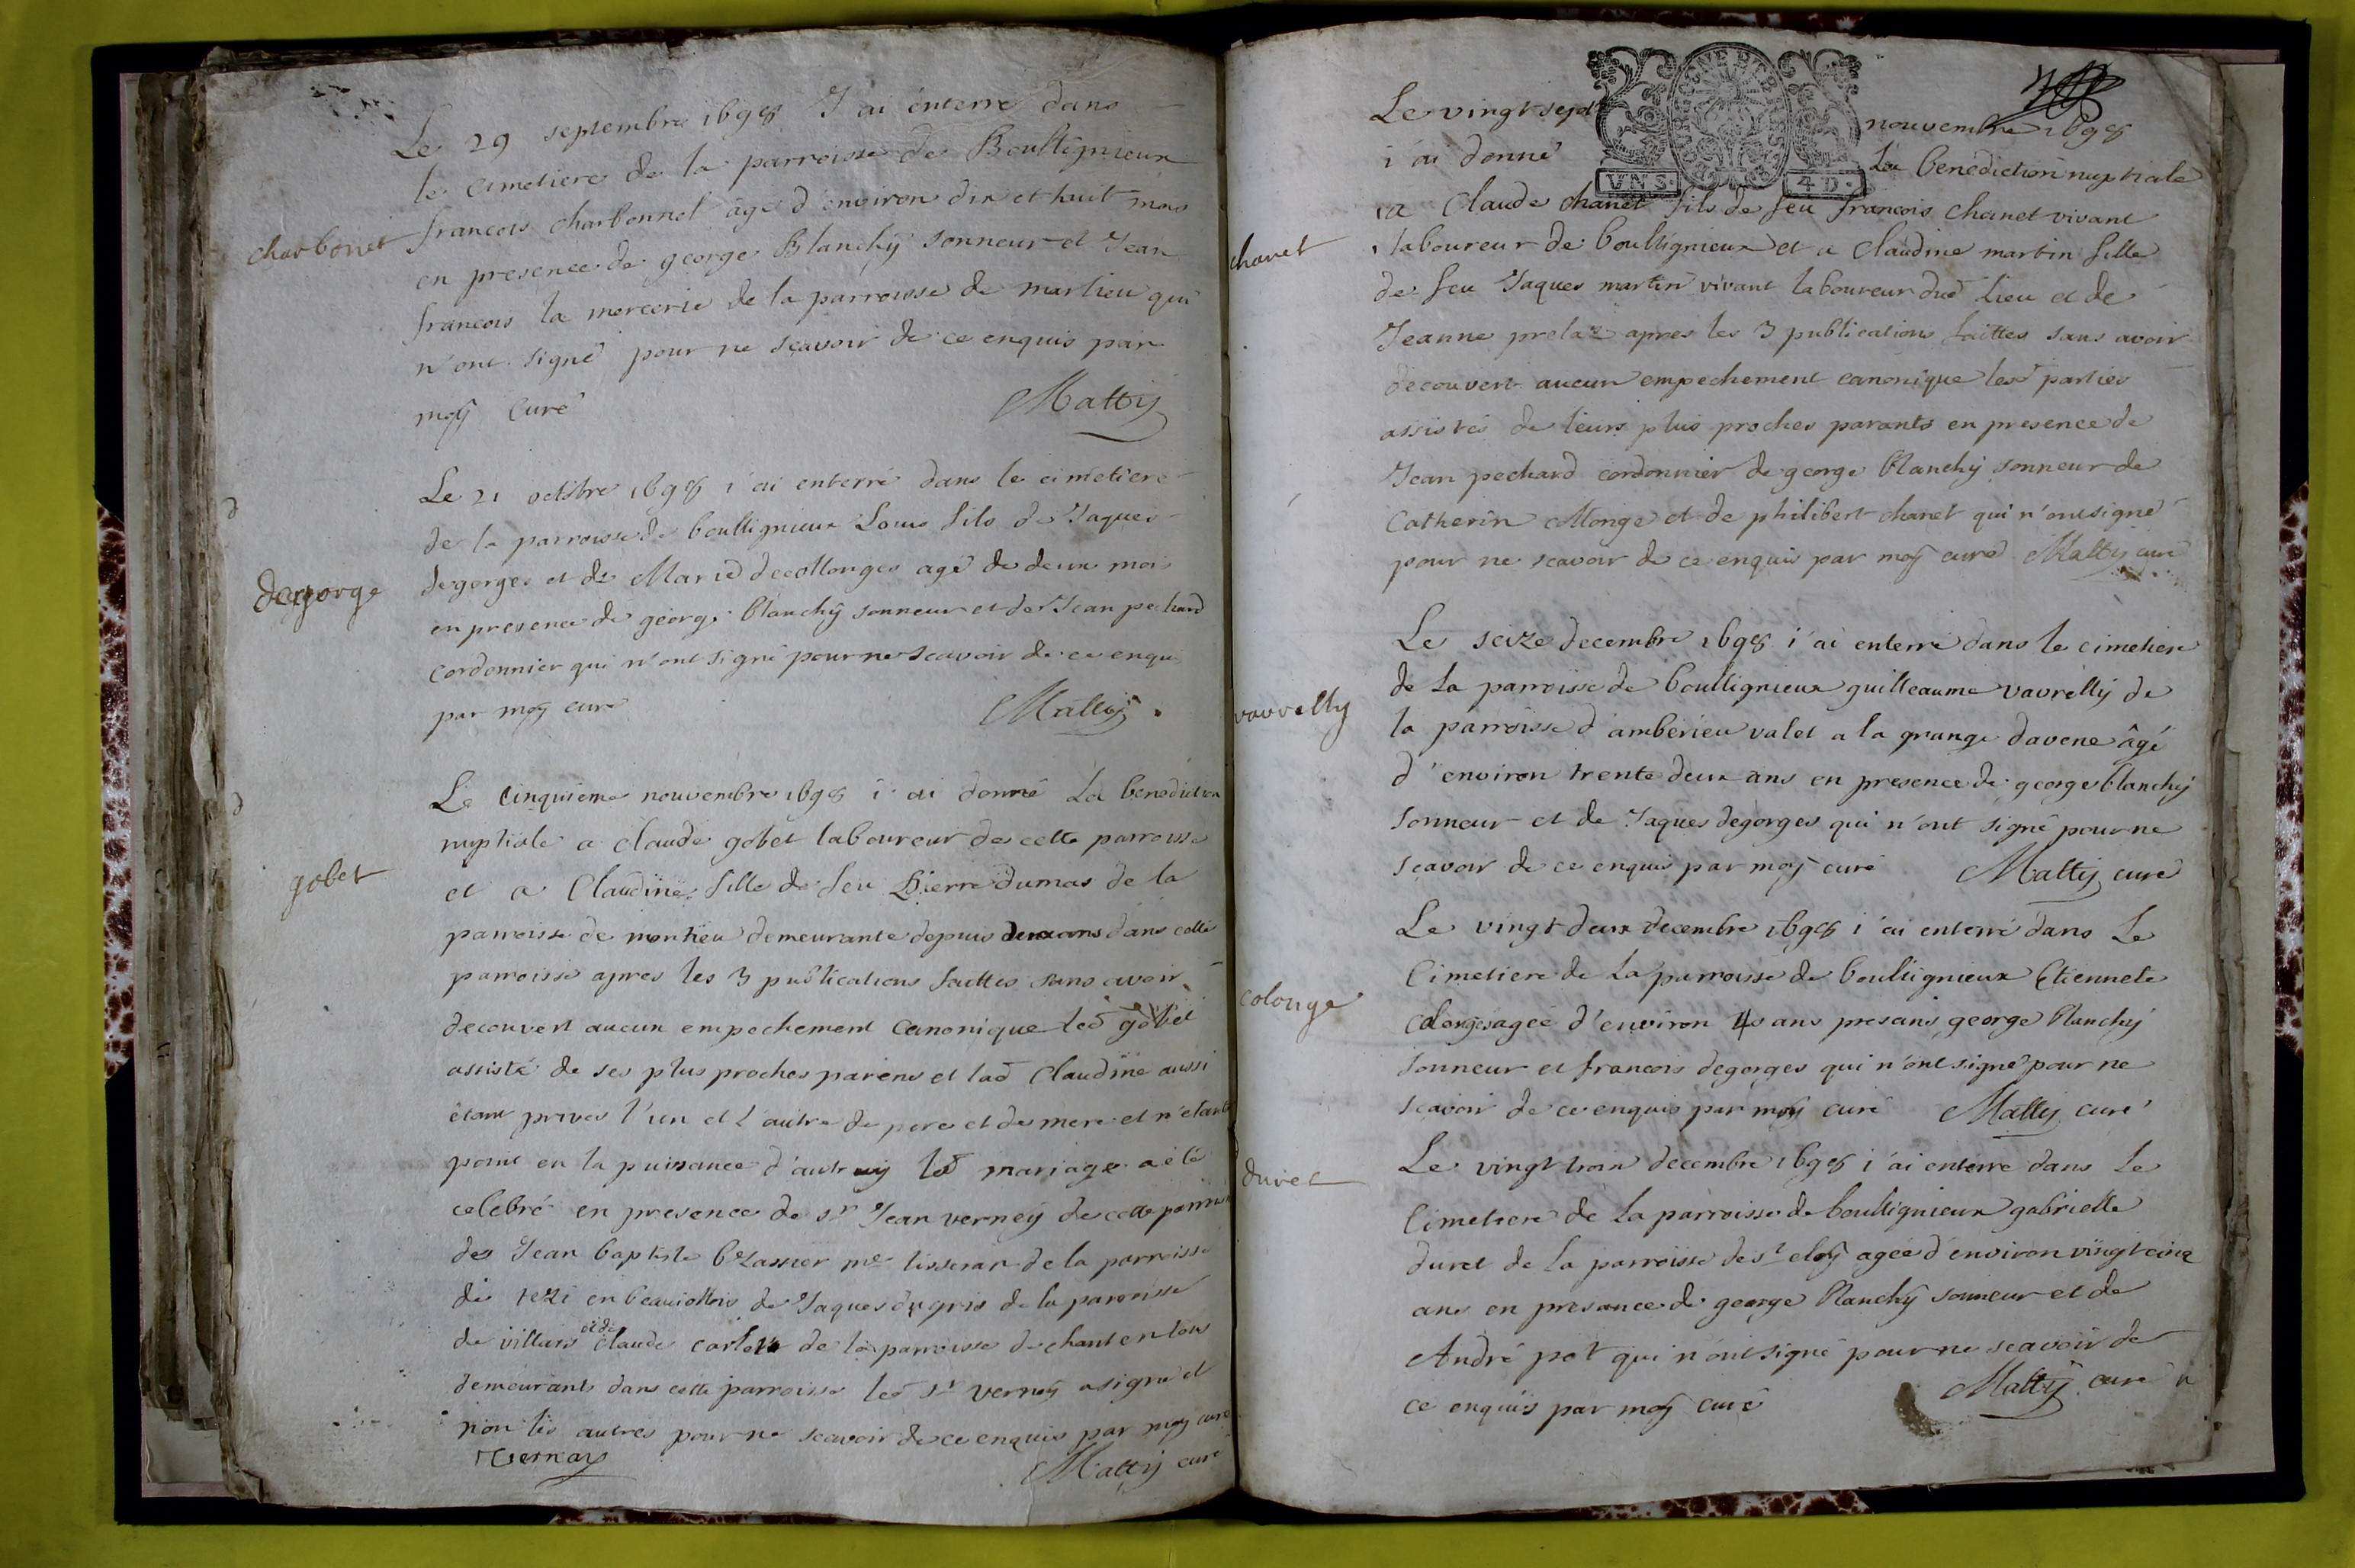 Le 29 septembre 1698 J'ai enterré dans
le cimetiere de la parroisse de Boulligneux
charbonet
francois charbonnet âgé d'environ dix et huit mois
en presence de george Blanchÿ sonneur et Jean
francois la mercerie de la parroisse de marlieu qui
n'ont signé pour ne sçavoir de ce enquis par
moÿ Curé Mattij
Le 21 octobre 1698 i'ai enterré dans le cimetiere
de la parroisse de boulligneux Louis fils de Jaques
degorge
degorges et de Marie decollonges agé de deux mois
en presence de george blanchÿ sonneur et de Jean pechard
cordonnier qui n'ont signé pour ne scavoir de ce enqui
par moÿ curé Mattij
Le Cinquieme nouvembre 1698 i'ai donné La benediction
nuptiale a claude gobet laboureur de cette parroisse
gobet
et a Claudine fille de feu Pierre dumas de la
parroisse de montieu demeurante depuis deux ans dans cette
parroisse apres les 3 publications faittes sans avoir
decouvert aucun empechement canonique led gobet
assisté de ses plus proches parens et lad Claudine aussi
etant privés l'un et l'autre de pere et de mere et n'etant
point en la puissance d'autruy led mariage a eté
celebré en presence de sr Jean verneÿ de cette parroisse
de Jean baptiste me tisseran de la parroisse
de en beaujollois de Jaques dugris de la parroisse
de villars et de claude de la parroisse de
demeurants dans cette parroisse led sr verneÿ a signé et
non les autres pour ne scavoir de ce enquis par moÿ curé
Vernay Mattij curé
Le vingt sept nouvembre 1698
i'ai donné La benediction nuptiale
VN S. 4 D.
a Claude chanet fils de feu francois chanet vivant
chanet
laboureur de boulligneux et a Claudine martin fille
de feu Jaques martin vivant laboureur dud Lieu et de
Jeanne prelaz apres les 3 publications faittes sans avoir
decouvert aucun empechement canonique lesd parties
assistés de leurs plus proches parants en presence de
Jean pechard cordonnier de george blanchÿ sonneur de
Catherin Monge et de philibert chanet qui n'ont signé
pour ne scavoir de ce enquis par moÿ curé Mattij curé
Le seize decembre 1698 i'ai enterré dans le cimetiere
de La parroisse de boulligneux guilleaume vavrellÿ de
vavrelly
la parroisse d'amberieu valet a la grange davene âgé
d'environ trente deux ans en presence de george blanchÿ
sonneur et de Jaques degorges qui n'ont signé pour ne
scavoir de ce enquis par moÿ curé Mattij curé
Le vingt deux decembre 1698 i'ai enterré dans Le
Cimetiere de La parroisse de boulligneux Etiennete
colonge
colonges agée d'environ ans presans george Blanchÿ
sonneur et francois degorges qui n'ont signé pour ne
scavoir de ce enquis par moÿ curé Mattij curé
Le vingt trois decembre 1698 i'ai enterré dans Le
duret
Cimetiere de La parroisse de boulligneux gabrielle
duret de La parroisse de st eloÿ agée d'environ vingt cinq
ans en presance de george Blanchÿ sonneur et de
André pot qui n'ont signé pour ne scavoir de
ce enquis par moÿ curé Mattij curé